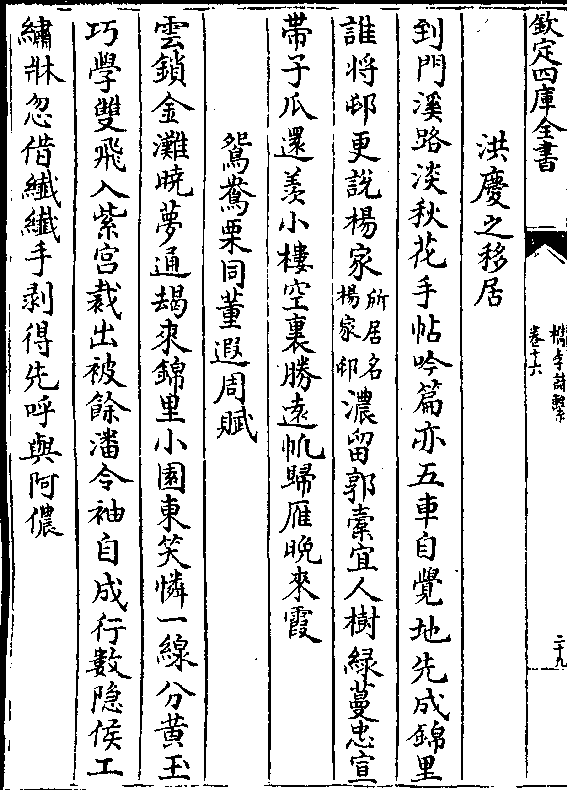 欽定四庫全書
卷十六
二十九
洪慶之移居
到門溪路淡秋花手帖吟篇亦五車自覺地先成錦里
誰将邨更説楊家所居名楊家邨濃留郭橐宜人樹緑蔓忠宣
帶子瓜還羡小樓空裏勝逺帆歸雁晩來霞
鴛鴦栗同董遐周賦
雲鎖金灘暁夢通朅來錦里小園東笑憐一線分黄玉
巧學雙飛入紫宫裁出被餘潘令袖自成行數隐侯工
繡牀忽借纖纖手剥得先呼與阿儂